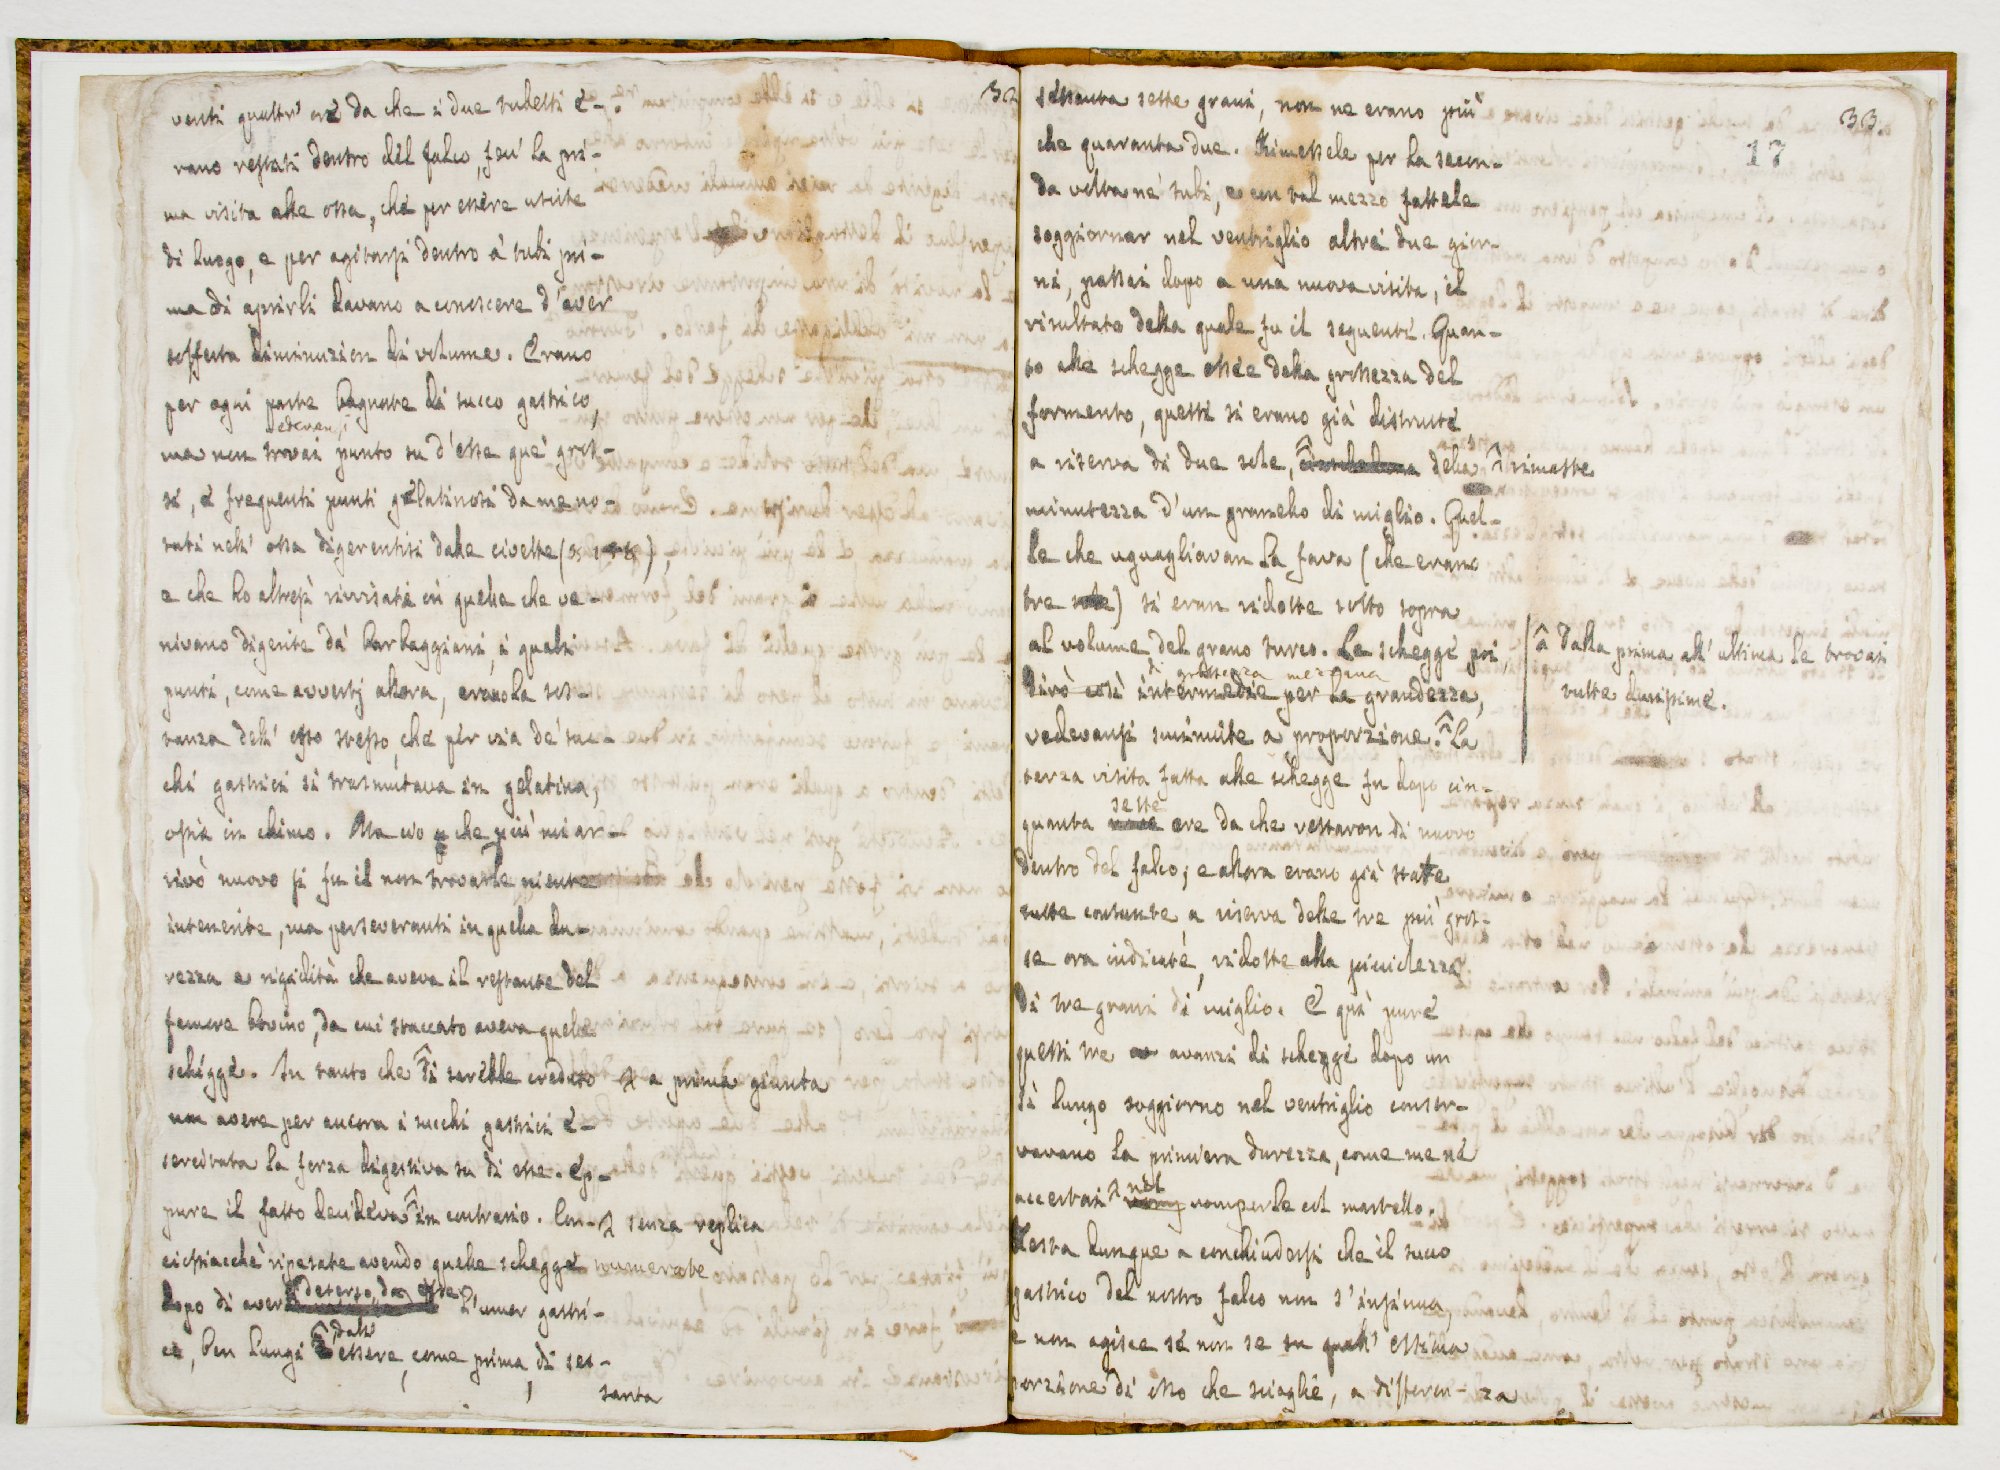 32
venti quattr' ore da che i due tubetti e-
rano restati dentro del falco, feci la pri-
ma visita alle ossa, che per essere uscite
di luogo, e per agitarsi dentro a' tubi pri-
ma di aprirli davano a conoscere d'aver
sofferta diminuzion di volume. Erano
per ogni parte bagnate di succo gastrico,
ma non trovai punto su d'esse que' gros-
si, e frequenti punti gelatinosi da me no-
tati nell' ossa digerentisi dalle civette
e che ho altresì ravvisati in quelle che ve-
nivano digerite da' barbaggiani, i quali
punti, come avvertij allora, erano la sos-
tanza dell' osso stesso, che per via de' suc-
chi gastrici si trasmutava in gelatina,
ossia in chimo. Ma ciò che più mi ar-
rivò nuovo si fu il non trovarle niente
intenerite, ma perseveranti in quella du-
rezza e rigidità che aveva il restante del
femore bovino, da cui staccato aveva quelle
schegge. In tanto che si sarebbe creduto a prima giunta
non avere per ancora i succhi gastrici e-
sercitata la forza digestiva su di esse. Ep-
pure il fatto decideva in contrario. Con- senza replica
ciossiacchè ripesate avendo quelle schegge numerate
dopo di aver deterso da esse l'umor gastri-
co, ben lungi dall' essere, come prima, di ses-
santa
33.
17
sessanta sette grani, non ne erano più
che quaranta due. Rimessele per la secon-
da volta ne' tubi, e con tal mezzo fattele
soggiornar nel ventriglio altri due gior-
ni, passai dopo a una nuova visita, il
risultato della quale fu il seguente. Quan-
to alle schegge ossee della grossezza del
formento, queste si erano già distrutte
a riserva di due sole, della rimaste
minutezza d'un granello di miglio. Quel-
le che uguagliavan la fava (che erano
tre sole) si eran ridotte sotto sopra
al volume del grano turco. Le schegge poi,
di grossezza mezzana
dirò così intermedie per la grandezza,
vedevansi sminuite a proporzione. La
dalla prima all' ultima le trovai
tutte durissime.
terza visita fatta alle schegge fu dopo cin-
quanta sette ore da che restaron di nuovo
dentro del falco; e allora erano già state
tutte consunte, a riserva delle tre più gros-
se ora indicate, ridotte alla picciolezza
di tre grani di miglio. E quì pure
questi tre avanzi di schegge dopo un
sì lungo soggiorno nel ventriglio conser-
vavano la primiera durezza, come me ne
accertai nel romperle col martello.
Resta dunque a conchiudersi che il succo
gastrico del nostro falco non s'insinua,
e non agisce se non se su quell' estima
porzione di osso che scioglie, a differen-za